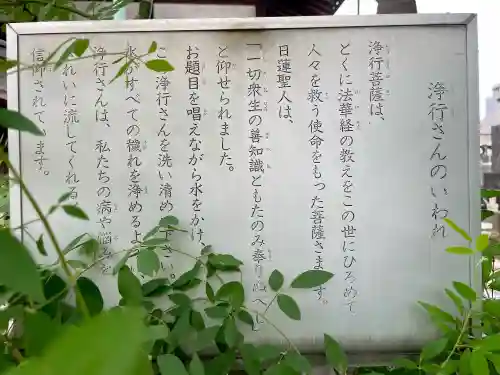 浄行さんのいわれ
浄行菩薩は、
とくに法華経の教えをこの世にひろめて
人々を救う使命をもった菩薩さまです。
日蓮聖人は、
「一切衆生の善知識ともたのみ奉りぬべし」
と仰せられました。
お題目を唱えながら水をかけ、
この浄行さんを洗い清めて下さい。
水はすべての穢れを浄めるよ
浄行さんは、私たちの病や悩みを
れいに流してくれる
信仰されています。